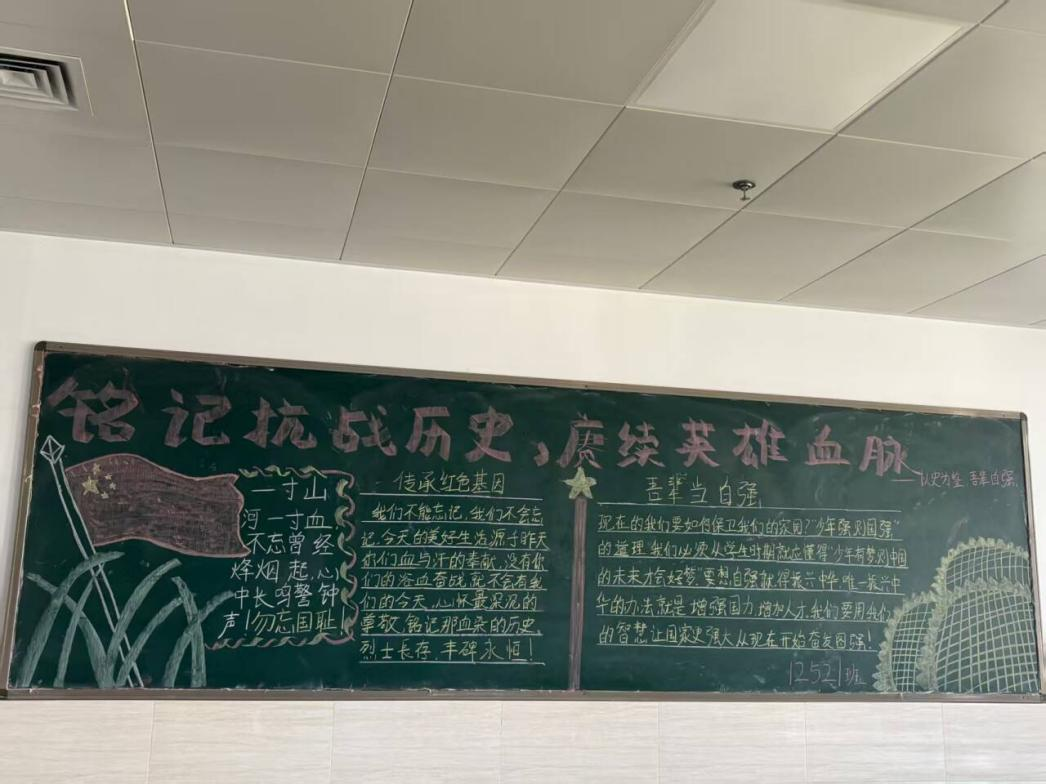 铭记抗战历史，赓续英雄血脉
——以史为鉴 吾辈自强
一寸山
河一寸血
不忘曾经
烽烟起，心
中长鸣警钟
声！勿忘国耻！
传承红色基因
我们不能忘记，我们不会忘
记，今天的美好生活源于昨天
你们血与汗的奉献，没有你
们的浴血奋战，就不会有我
们的今天。心怀最深沉的
尊敬，铭记那血染的历史，
烈士长存，丰碑永恒！
吾辈当自强
现在的我们要如何保卫我们的家园？“少年强则国强”
的道理，我们必须从学生时期就应懂得“少年有梦，则中国
的未来才会好梦”要想自强就得振兴中华，唯一振兴中
华的办法就是增强国力，增加人才，我们要用我们
的智慧让国家更强大，从现在开始奋发图强！
1252班